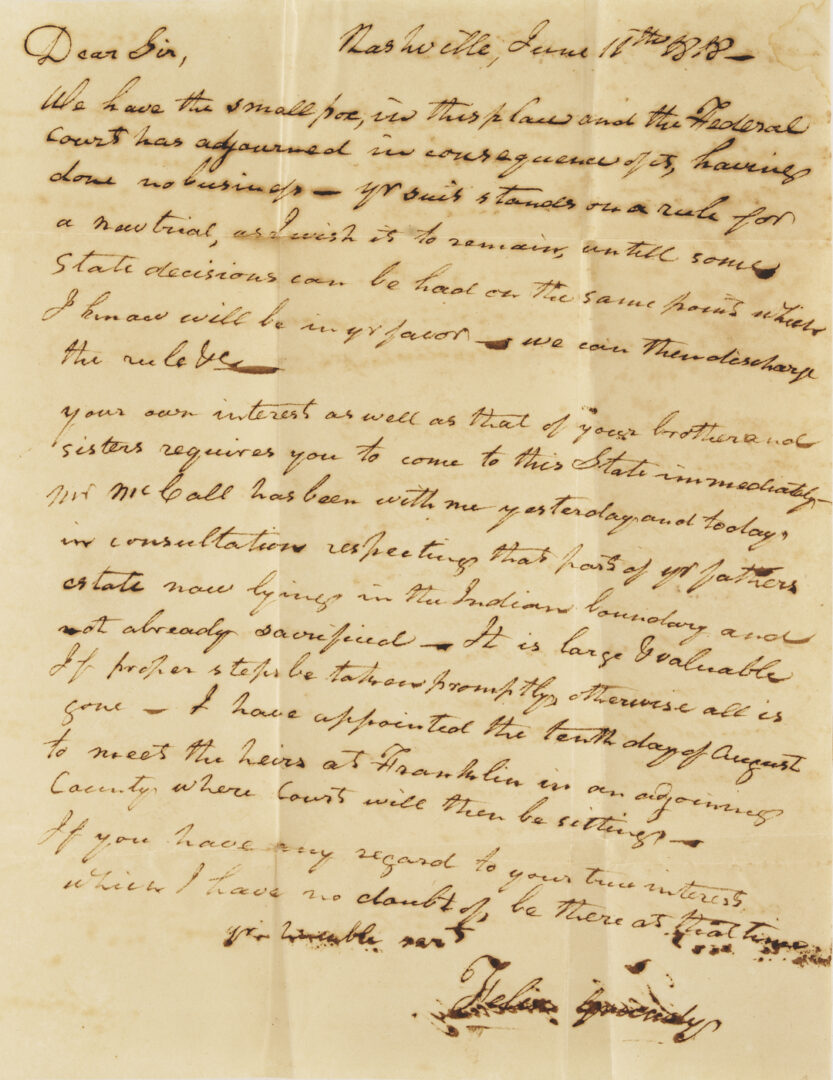 Nashville, June 11th 1818—
Dear Sir,
We have the small pox, in this place and the Federal
Court has adjourned in consequence of it, having
done no business — yr suit stands on a rule for
a new trial, as I wish it to remain, untill some
State decisions can be had on the same point which
I know will be in yr favor — we can then discharge
the rule &c—
your own interest as well as that of your brother and
sisters requires you to come to this State immediately—
Mr McCall has been with me yesterday and today,
in consultation respecting that part of yr fathers
estate now lying in the Indian boundary and
not already sacrificed — It is large & valuable
If proper steps be taken promptly, otherwise all is
gone — I have appointed the tenth day of August
to meet the heirs at Franklin in an adjoining
County where Court will then be sitting —
If you have any regard to your true interest
which I have no doubt of, be there at that time
yr. humble sert
Felix Grundy